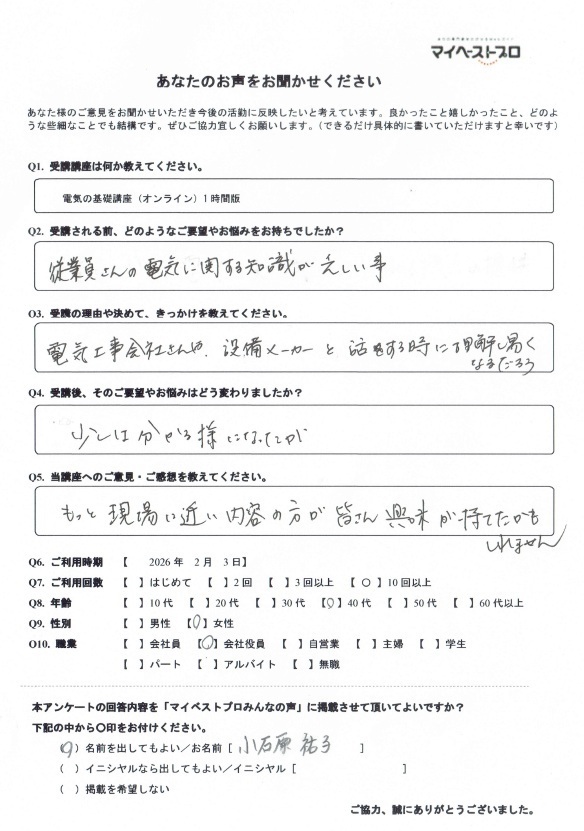 マイベストプロ
あなたのお声をお聞かせください
あなた様のご意見をお聞かせいただき今後の活動に反映したいと考えています。良かったこと嬉しかったこと、どのよ
うな些細なことでも結構です。ぜひご協力宜しくお願いします。（できるだけ具体的に書いていただけますと幸いです）
Q1. 受講講座は何か教えてください。
電気の基礎講座（オンライン）１時間版
Q2. 受講される前、どのようなご要望やお悩みをお持ちでしたか？
従業員さんの電気に関する知識が乏しい事
Q3. 受講の理由や決めて、きっかけを教えてください。
電気工事会社さんや、設備メーカーと話をする時に理解し易く
なるだろう
Q4. 受講後、そのご要望やお悩みはどう変わりましたか？
少しは分かる様になったが
Q5. 当講座へのご意見・ご感想を教えてください。
もっと現場に近い内容の方が皆さん興味が持てたかも
しれません
Q6. ご利用時期 【 2026 年 2 月 3 日】
Q7. ご利用回数 【 】はじめて 【 】2 回 【 】3 回以上 【 ○ 】10 回以上
Q8. 年齢 【 】10 代 【 】20 代 【 】30 代 【○】40 代 【 】50 代 【 】60 代以上
Q9. 性別 【 】男性 【○】女性
Q10. 職業 【 】会社員 【○】会社役員 【 】自営業 【 】主婦 【 】学生
【 】パート 【 】アルバイト 【 】無職
本アンケートの回答内容を「マイベストプロみんなの声」に掲載させて頂いてよいですか？
下記の中から〇印をお付けください。
（○）名前を出してもよい／お名前［ 小石原 祐子 ］
（ ）イニシャルなら出してもよい／イニシャル［ ］
（ ）掲載を希望しない
ご協力、誠にありがとうございました。